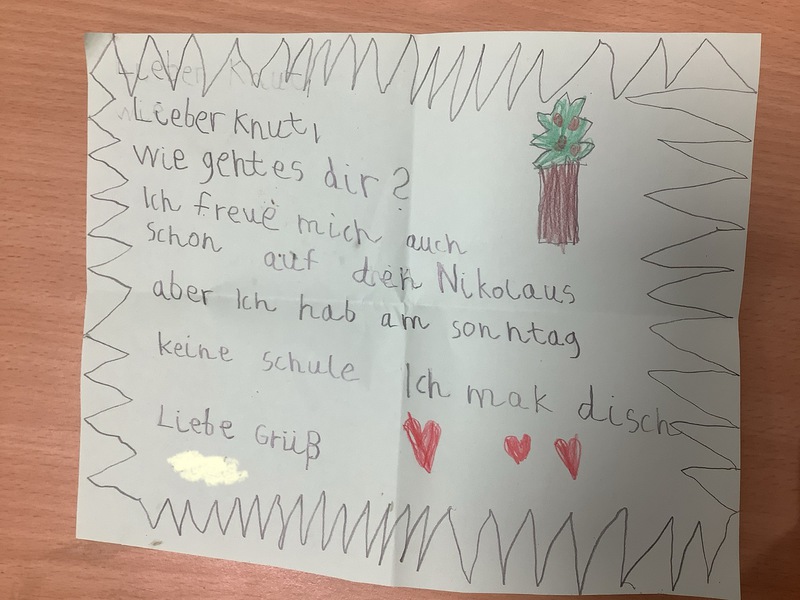 Lieber Knut
Lieber Knut,
wie geht es dir?
Ich freue mich auch
schon auf den Nikolaus
aber Ich hab am sonntag
keine schule Ich mak disch
Liebe Grüß